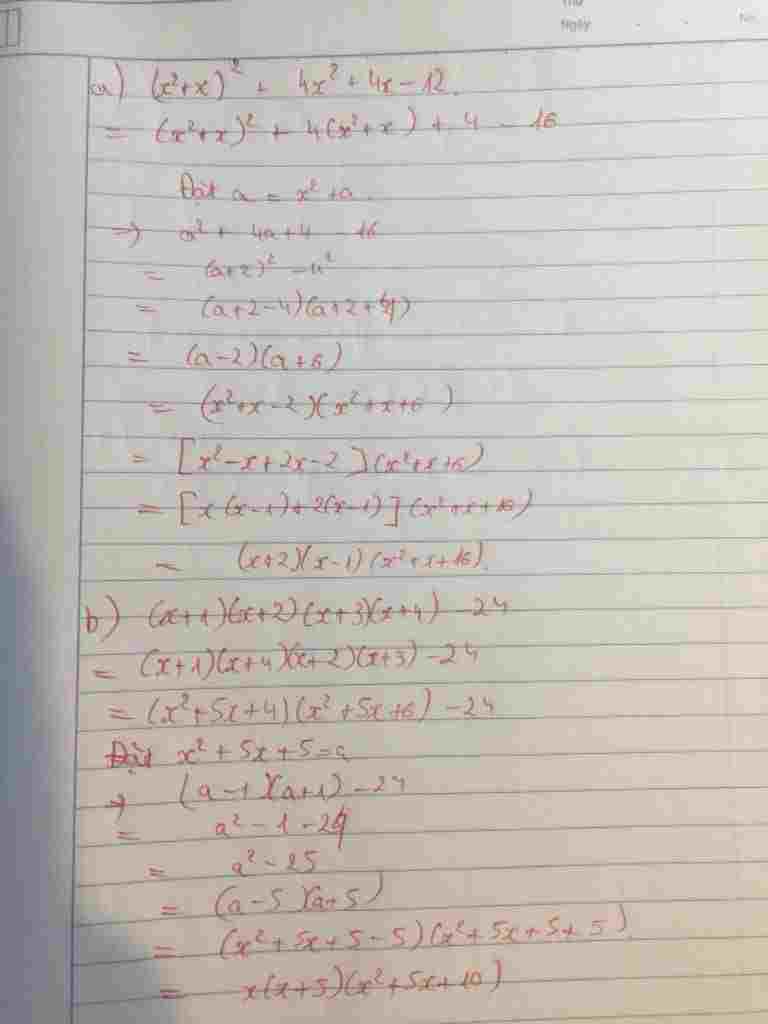 Thứ
Ngày
No.
a) (x²+x)² + 4x² + 4x - 12.
= (x²+x)² + 4(x²+x) + 4 - 16
Đặt a = x² + a.
=> a² + 4a + 4 - 16
= (a+2)² - 4²
= (a+2-4)(a+2+4)
= (a-2)(a+6)
= (x²+x-2)(x²+x+6)
= [x²-x+2x-2](x²+x+6)
= [x(x-1)+2(x-1)](x²+x+16)
= (x+2)(x-1)(x²+x+16).
b) (x+1)(x+2)(x+3)(x+4) - 24
= (x+1)(x+4)(x+2)(x+3) - 24
= (x²+5x+4)(x²+5x+6) - 24
Đặt x² + 5x + 5 = a
=> (a-1)(a+1) - 24
= a² - 1 - 24
= a² - 25
= (a-5)(a+5)
= (x²+5x+5-5)(x²+5x+5+5)
= x(x+5)(x²+5x+10)